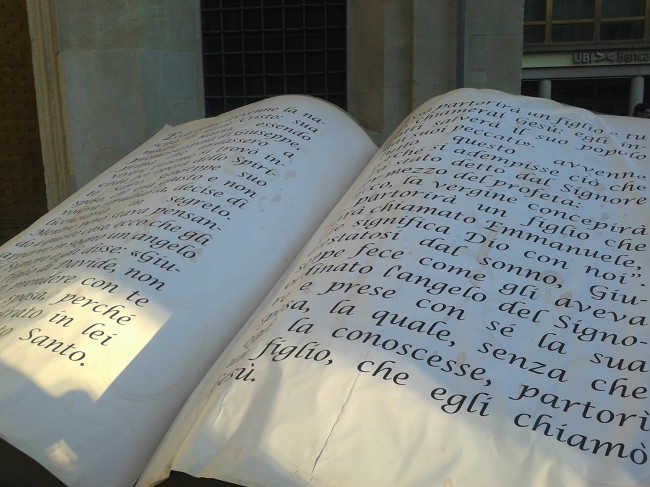 UBI Banca
come la na-
Cristo: sua
essendo
Giuseppe,
andassero a
trovò in-
dello Spiri-
suo
e non
decise di
in segreto.
stava pensan-
cose, ecco che gli
sogno un angelo
e gli disse: «Giu-
di Davide, non
prendere con te
sposa, perché
rato in lei
Santo.
partorirà un figlio e tu
chiamerai Gesù: egli in-
salverà il suo popolo
suoi peccati».
questo avvenne
si adempisse ciò che
stato detto dal Signore
mezzo del profeta:
la vergine concepirà
partorirà un figlio che
rà chiamato Emmanuele,
significa Dio con noi”.
statosi dal sonno, Giu-
ppe fece come gli aveva
rdinato l'angelo del Signo-
re e prese con sé la sua
sa, la quale, senza che
la conoscesse, partorì
figlio, che egli chiamò
esù.